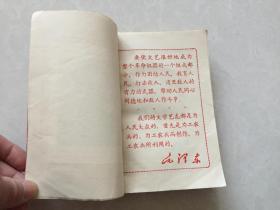 要使文艺很好地成为
整个革命机器的一个组成部
分，作为团结人民、教育人
民、打击敌人、消灭敌人的
有力的武器，帮助人民同心
同德地和敌人作斗争。
我们的文学艺术都是为
人民大众的，首先是为工农
兵的，为工农兵而创作，为
工农兵所利用的。
毛泽东